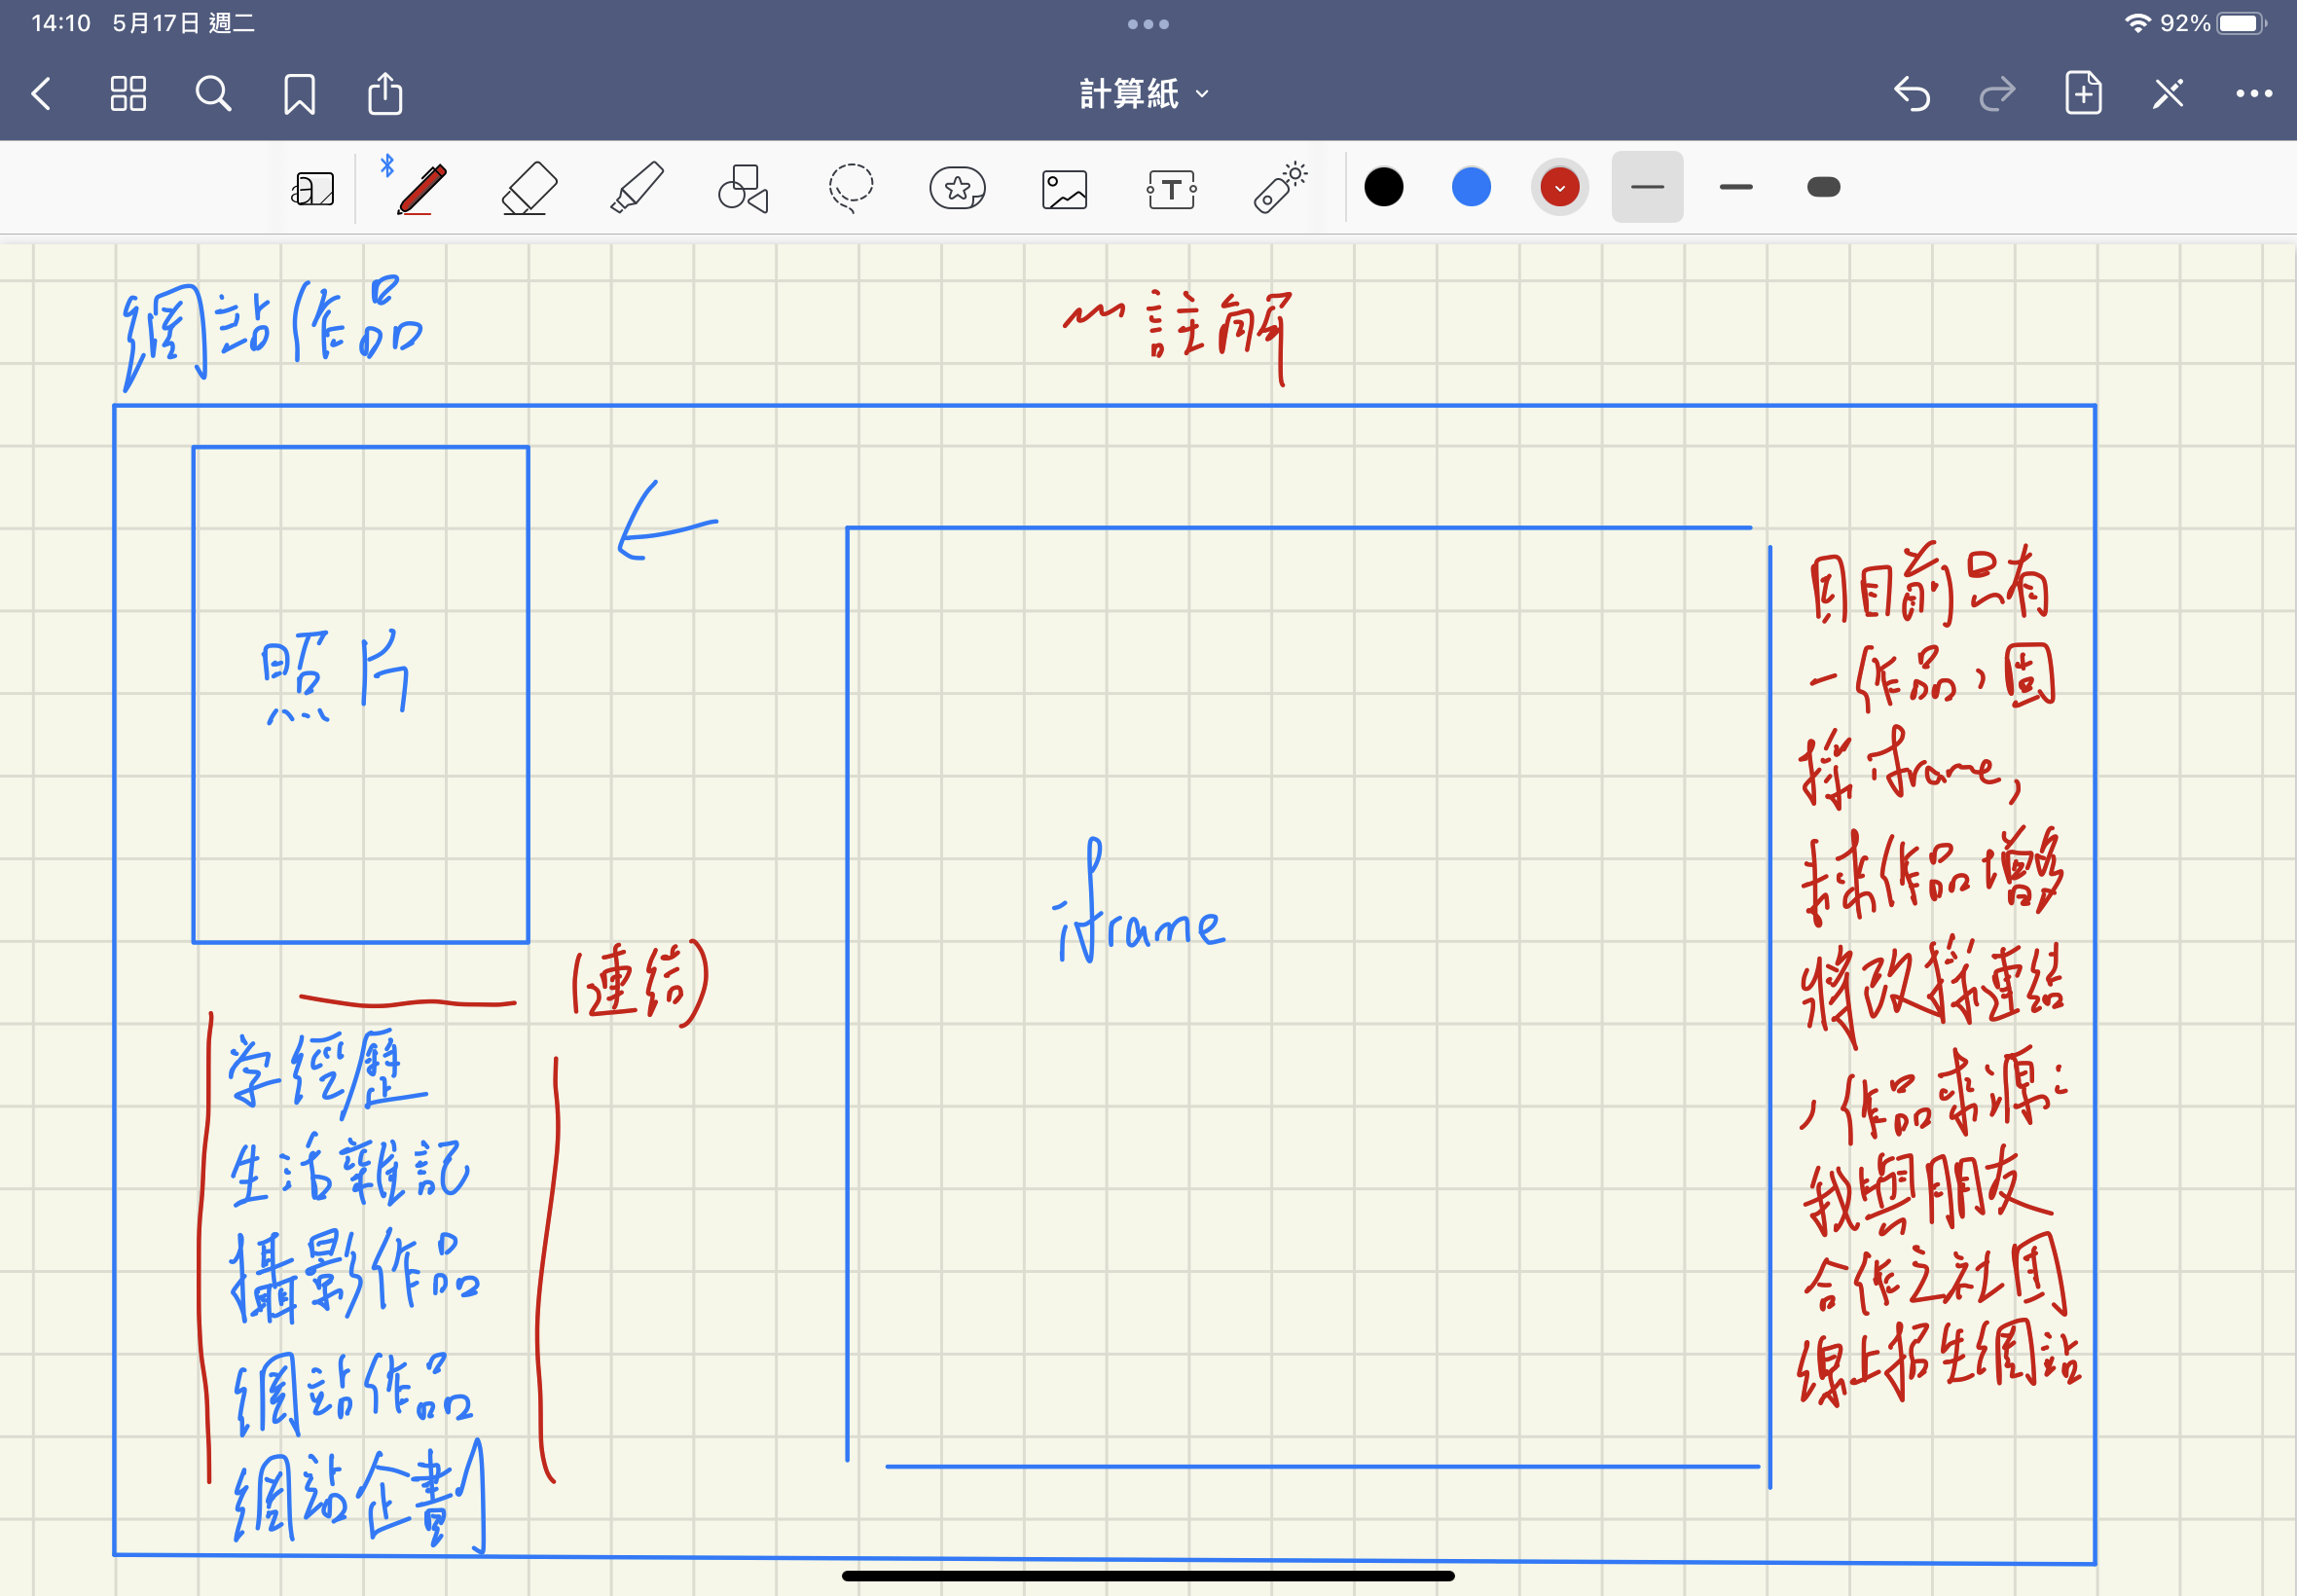 14:10 5月17日 週二
92%
計算紙
網站作品
註解
照片
iframe
(連結)
学經歷
生活雜記
攝影作品
網站作品
網站企劃
因目前只有
一作品,固
採iframe,
未來作品增多
將改採連結
,作品來源:
我與朋友
合作之社團
線上招生網站